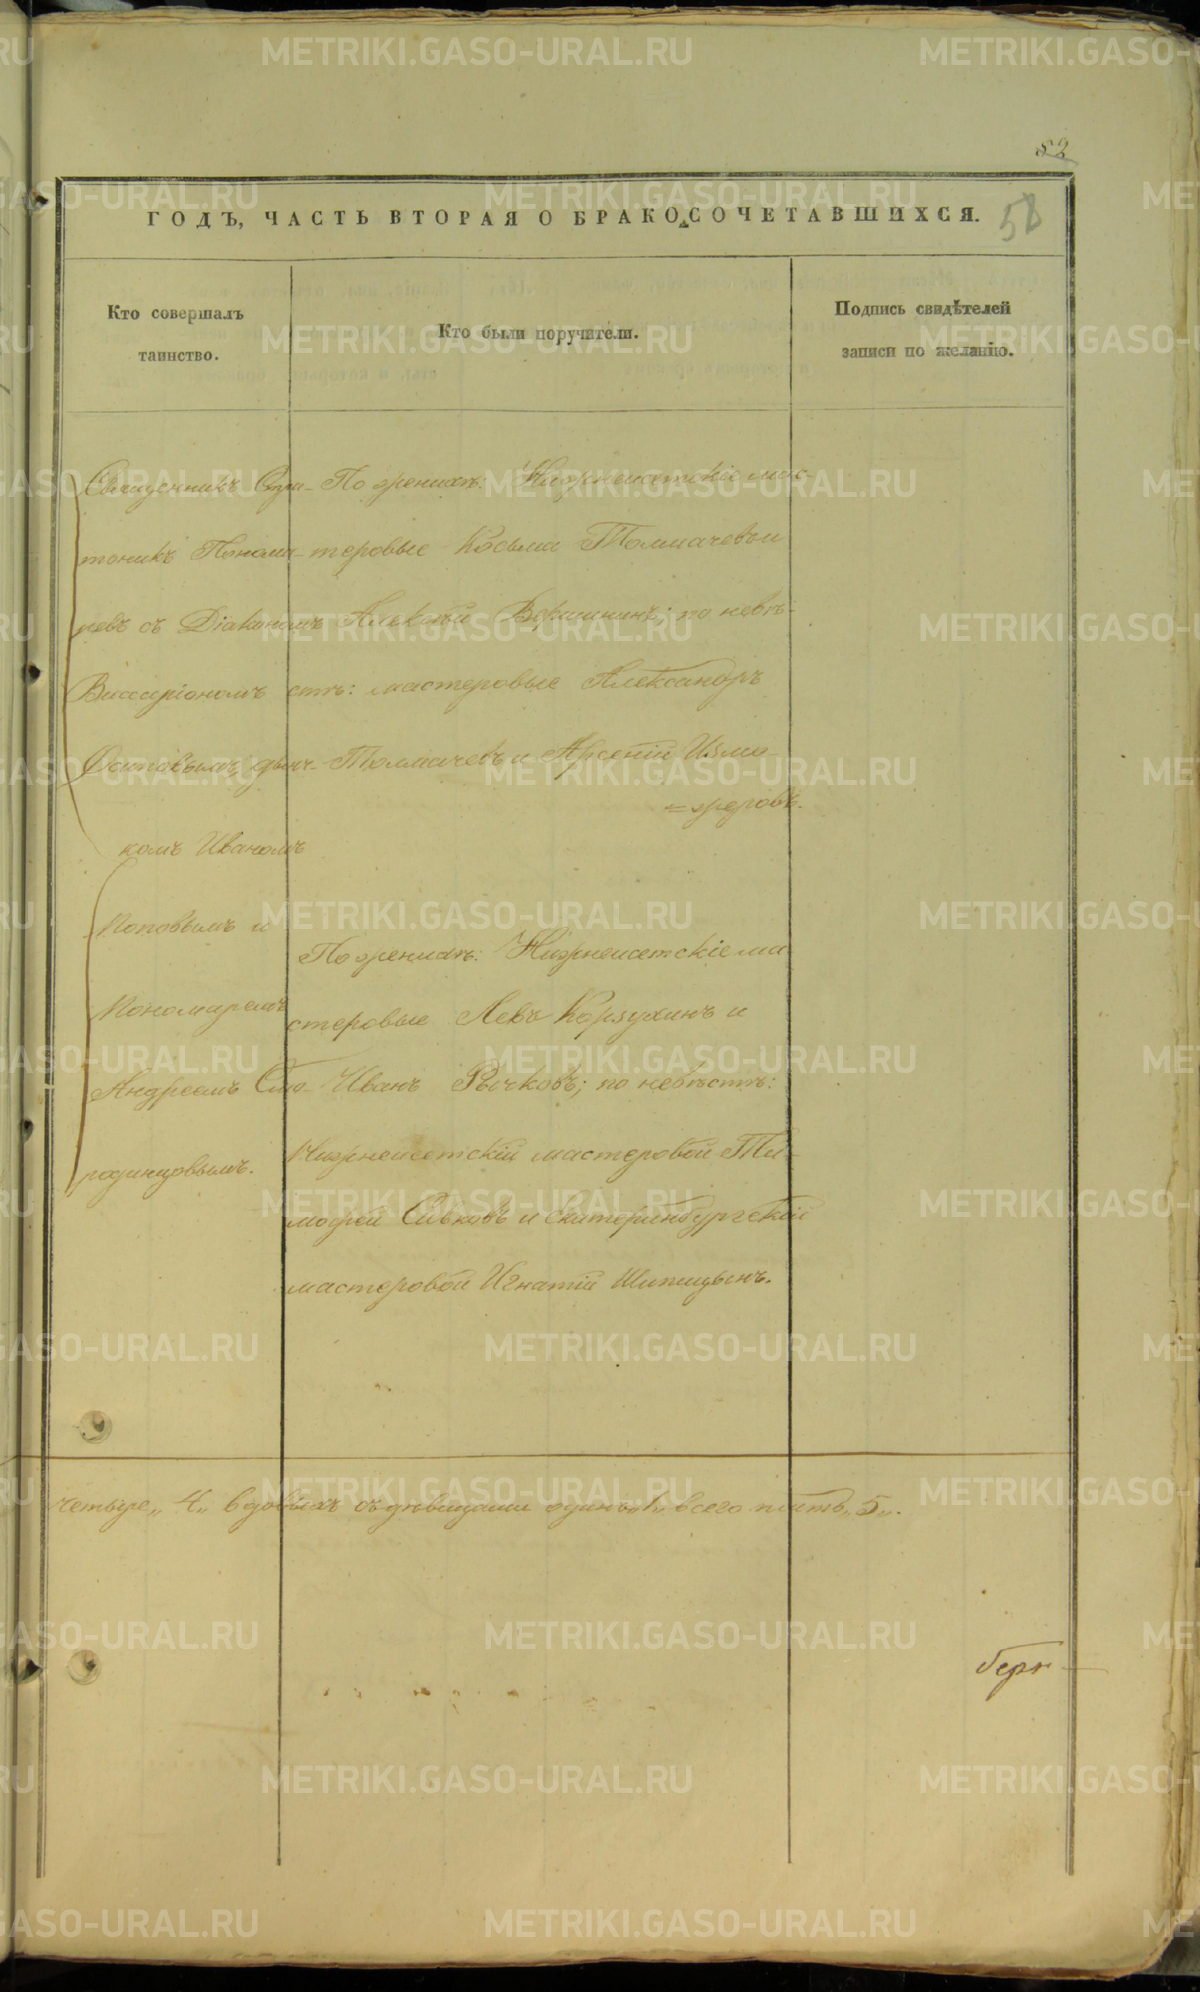 52
ГОДЪ, ЧАСТЬ ВТОРАЯ О БРАКОСОЧЕТАВШИХСЯ.
58
Кто совершалъ
таинство.
Кто были поручители.
Подпись свидѣтелей
записи по желанію.
Священникъ
тоникъ Понома-
ревъ съ Діакономъ
Виссаріономъ
Осиповымъ, дьяч-
комъ Иваномъ
Поповымъ и
Пономаремъ
Андреемъ Смо-
родинцовымъ.
По женихѣ: Нижнеисетскіе мас-
теровые Косьма Толмачевъ и
Алексѣй Вершининъ; по невѣ-
стѣ: мастеровые Александръ
Толмачевъ и Арсеній Измо-
=жеровъ.
По женихѣ: Нижнеисетскіе ма-
стеровые Левъ Корзухинъ и
Иванъ Рычковъ; по невѣстѣ:
Нижнеисетскій мастеровой Ти-
мофей Сивковъ и Екатеринбургскій
мастеровой Игнатій Шипицынъ.
четыре „4„ вдовыхъ съ дѣвицами одинъ „1„ всего пять „5„.
METRIKI.GASO-URAL.RU